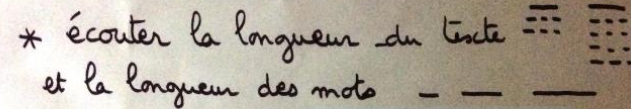 * écouter la longueur du texte
et la longueur des mots